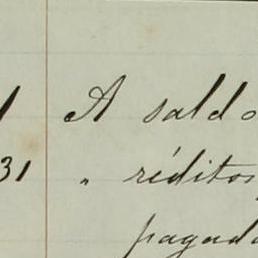 1 A saldo
31 " réditos
pagado